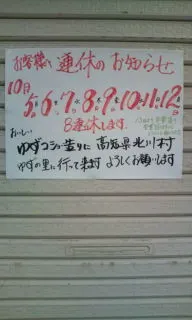 お客様へ 連休のお知らせ
10月
5 6 7 8 9 10 11 12
8連休します。
おいしい
ゆずコショー造りに 高知県北川村
ゆずの里に行って来ます よろしくお願いします